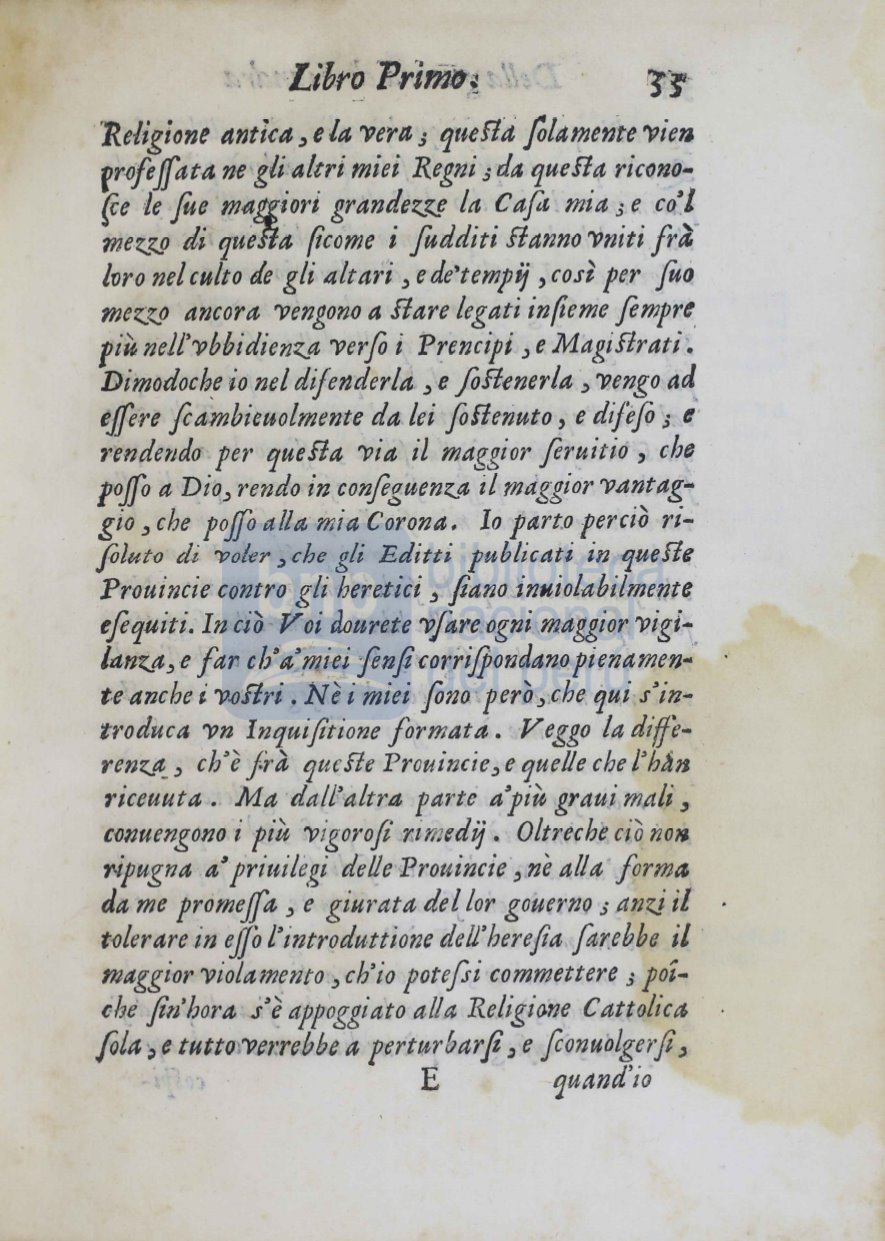 Libro Primo. 35
Religione antica, e la vera; questa ſolamente vien
profeſſata ne gli altri miei Regni; da questa ricono-
ſce le ſue maggiori grandezze la Caſa mia; e co'l
mezzo di questa ſicome i ſudditi stanno vniti frà
loro nel culto de gli altari, e de'tempij, così per ſuo
mezzo ancora vengono a stare legati inſieme ſempre
più nell'vbbidienza verſo i Prencipi, e Magistrati.
Dimodoche io nel difenderla, e ſostenerla, vengo ad
eſſere ſcambieuolmente da lei ſostenuto, e difeſo; e
rendendo per questa via il maggior ſeruitio, che
poſſo a Dio, rendo in conſeguenza il maggior vantag-
gio, che poſſo alla mia Corona. Io parto perciò ri-
ſoluto di voler, che gli Editti publicati in queste
Prouincie contro gli heretici, ſiano inuiolabilmente
eſequiti. In ciò Voi dourete vſare ogni maggior vigi-
lanza, e far ch'a'miei ſenſi corriſpondano pienamen-
te anche i vostri. Nè i miei ſono però, che qui s'in-
troduca vn Inquiſitione formata. Veggo la diffe-
renza, ch'è frà queste Prouincie, e quelle che l'hàn
riceuuta. Ma dall'altra parte a'più graui mali,
conuengono i più vigoroſi rimedij. Oltreche ciò non
ripugna a' priuilegi delle Prouincie, nè alla forma
da me promeſſa, e giurata del lor gouerno; anzi il
tolerare in eſſo l'introduttione dell'hereſia ſarebbe il
maggior violamento, ch'io poteſsi commettere; poi-
che ſin'hora s'è appoggiato alla Religione Cattolica
ſola, e tutto verrebbe a perturbarſi, e ſconuolgerſi,
E quand'io